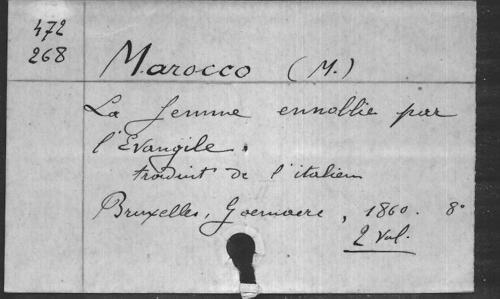 472
268
Marocco (M.)
La femme ennoblie par
l'Evangile.
traduit de l'italien
Bruxelles, Goemaere, 1860. 8°
2 Vol.